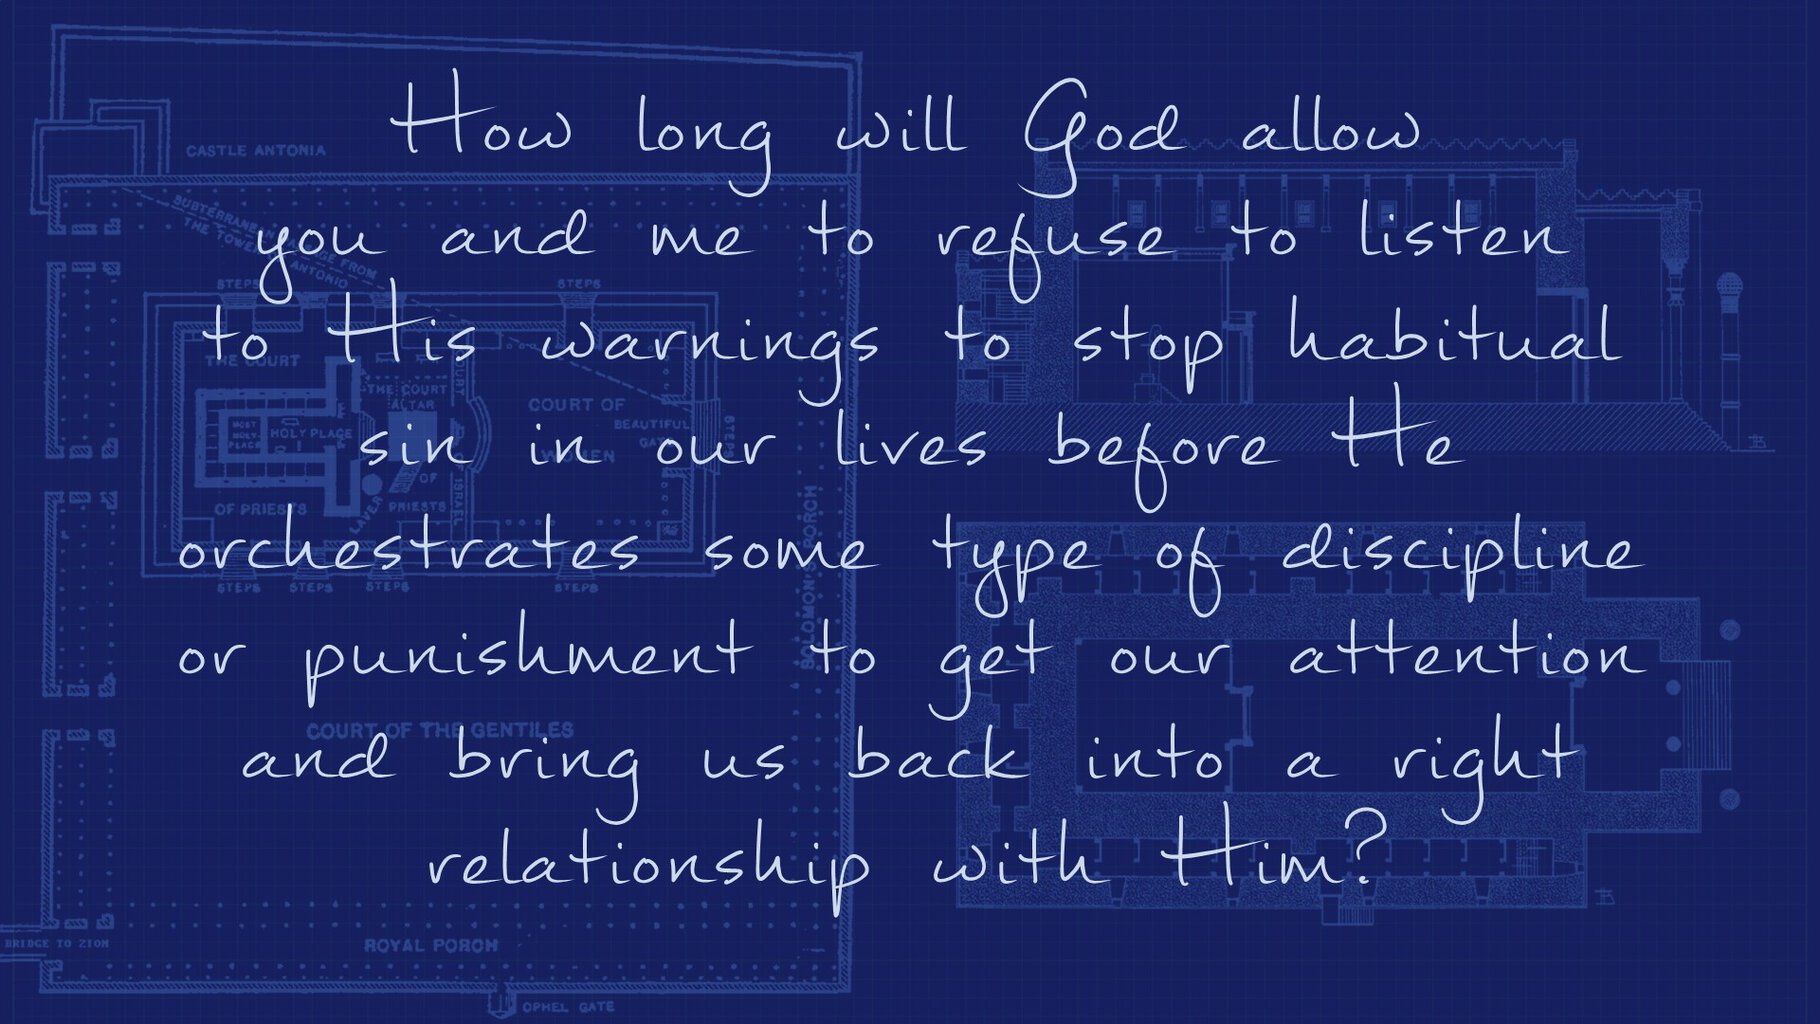 How long will God allow
you and me to refuse to listen
to His warnings to stop habitual
sin in our lives before He
orchestrates some type of discipline
or punishment to get our attention
and bring us back into a right
relationship with Him?
CASTLE ANTONIA
SUBTERRANEAN PASSAGE FROM
THE TOWER ANTONIO
STEPS
STEPS
THE COURT
THE COURT
ALTAR
COURT
COURT OF
WOMEN
BEAUTIFUL
GATE
STEPS
MOST
HOLY
PLACE
HOLY PLACE
OF PRIESTS
LAVER
OF
PRIESTS
ISRAEL
STEPS
STEPS
STEPS
STEPS
SOLOMON'S PORCH
COURT OF THE GENTILES
BRIDGE TO ZION
ROYAL PORCH
OPHEL GATE